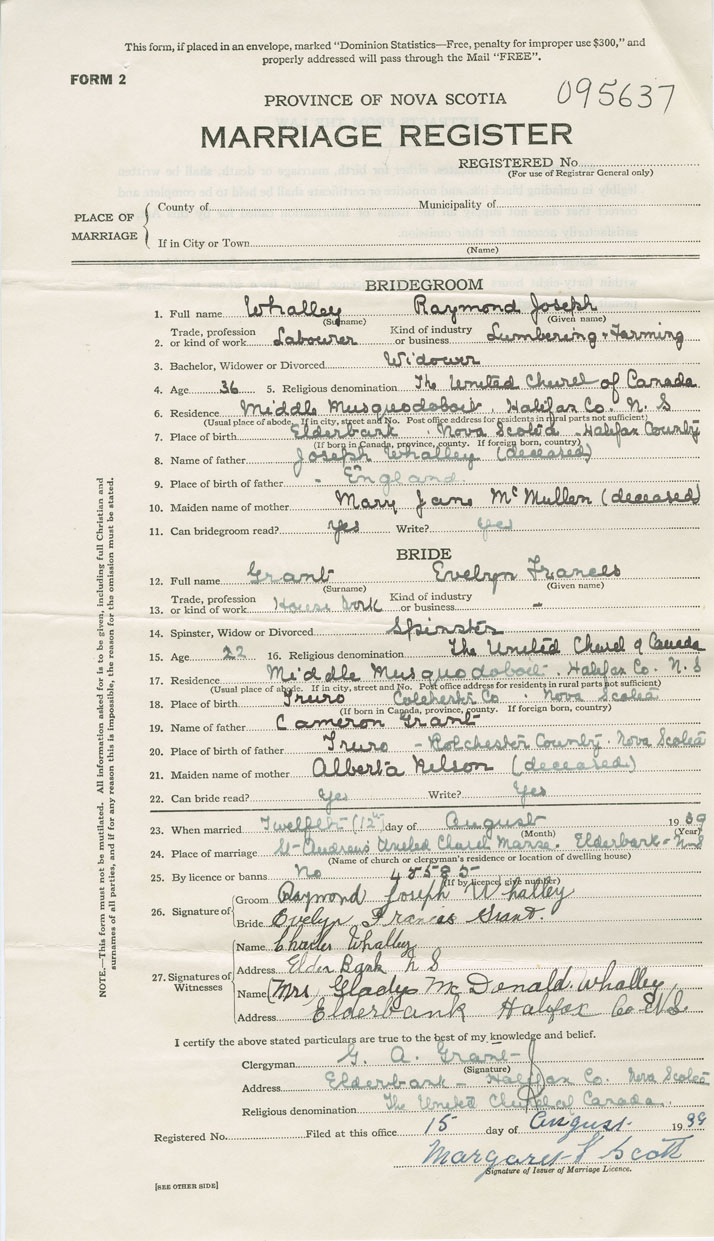 This form, if placed in an envelope, marked "Dominion Statistics—Free, penalty for improper use $300," and
properly addressed will pass through the Mail "FREE".
FORM 2
095637
PROVINCE OF NOVA SCOTIA
MARRIAGE REGISTER
REGISTERED No.
(For use of Registrar General only)
PLACE OF MARRIAGE
County of Municipality of
If in City or Town
(Name)
BRIDEGROOM
1. Full name Whalley Raymond Joseph
(Surname) (Given name)
2. Trade, profession or kind of work Labourer Kind of industry or business Lumbering + Farming
3. Bachelor, Widower or Divorced Widower
4. Age 36 5. Religious denomination The United Church of Canada
6. Residence Middle Musquodoboit, Halifax Co. N. S
(Usual place of abode. If in city, street and No. Post office address for residents in rural parts not sufficient)
7. Place of birth Elderbank Nova Scotia - Halifax County
(If born in Canada, province, county. If foreign born, country)
8. Name of father Joseph Whalley (deceased)
9. Place of birth of father England
10. Maiden name of mother Mary Jane McMullen (deceased)
11. Can bridegroom read? yes Write? yes
BRIDE
12. Full name Grant Evelyn Frances
(Surname) (Given name)
13. Trade, profession or kind of work House Work Kind of industry or business -
14. Spinster, Widow or Divorced Spinster
15. Age 22 16. Religious denomination The United Church of Canada
17. Residence Middle Musquodoboit Halifax Co. N. S
(Usual place of abode. If in city, street and No. Post office address for residents in rural parts not sufficient)
18. Place of birth Truro Colchester Co. Nova Scotia
(If born in Canada, province, county. If foreign born, country)
19. Name of father Cameron Grant
20. Place of birth of father Truro - Colchester County. Nova Scotia
21. Maiden name of mother Alberta Nelson (deceased)
22. Can bride read? Yes Write? Yes
23. When married Twelfth (12th) day of August 1939
(Month) (Year)
24. Place of marriage St-Andrews United Church Manse. Elderbank - N-S
(Name of church or clergyman's residence or location of dwelling house)
25. By licence or banns No 48585
(If by licence, give number)
26. Signature of
Groom Raymond Joseph Whalley
Bride Evelyn Frances Grant.
27. Signatures of Witnesses
Name Charles Whalley
Address Elder Bank N S
Name (Mrs, Gladys McDonald. Whalley,
Address Elderbank Halifax Co N.S
I certify the above stated particulars are true to the best of my knowledge and belief.
Clergyman G. A. Grant
(Signature)
Address Elderbank - Halifax Co. Nova Scotia
Religious denomination The United Church of Canada.
Registered No. Filed at this office 15 day of August 1939
Margaret Scott
Signature of Issuer of Marriage Licence.
[SEE OTHER SIDE]
NOTE.—This form must not be mutilated. All information asked for is to be given, including full Christian and
surnames of all parties, and if for any reason this is impossible, the reason for the omission must be stated.